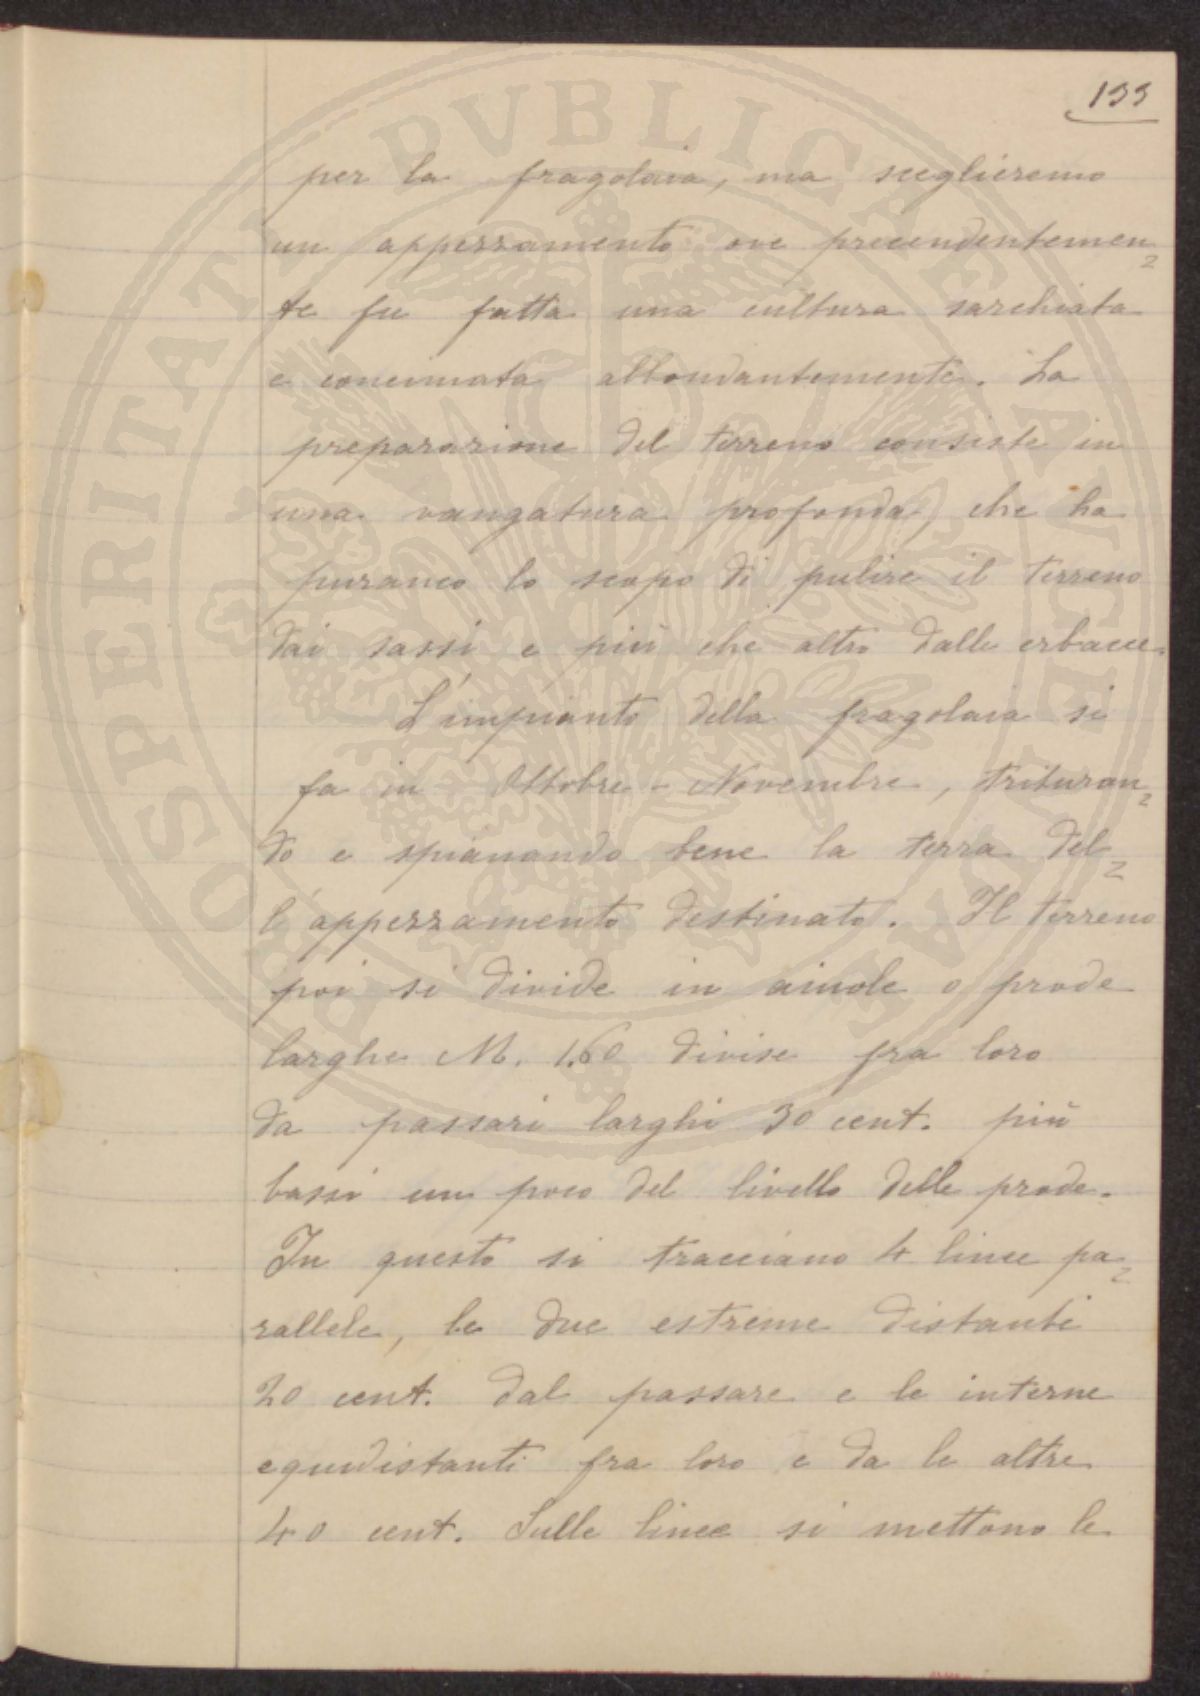 133
per la fragolaia, ma sceglieremo
un appezzamento ove precendentemen=
te fu fatta una cultura sarchiata
e concimata abbondantemente. La
preparazione del terreno consiste in
una vangatura profonda, che ha
puranco lo scopo di pulire il terreno
dai sassi e più che altro dalle erbacce.
L'impianto della fragolaia si
fa in Ottobre - Novembre, trituran=
do e spianando bene la terra del=
l'appezzamento destinato. Il terreno
poi si divide in aiuole o prode
larghe M. 1.60 divise fra loro
da passari larghi 30 cent. più
bassi un poco del livello delle prode.
In questo si tracciano 4 linee pa=
rallele, le due estreme distanti
20 cent. dal passare e le interne
equidistanti fra loro e da le altre
40 cent. Sulle linee si mettono le
PROSPERITATI PVBLICAE AVGENDAE